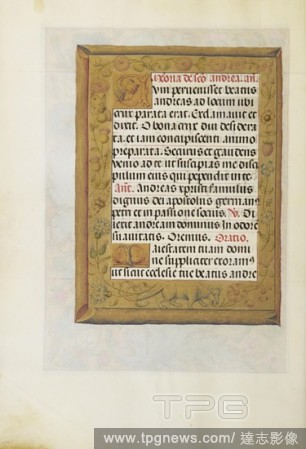 Memoria de sco andrea. an.
Cum pervenisset beatus
andreas ad locum ubi
crux parata erat. Exclamavit et
dixit. O bona crux diu desidera
ta. et iam concupiscenti animo
preparata. Securus et gaudens
venio ad te ut suscipias me disci
pulum eius qui pependit in te.
Ant. Andreas xpristi famulus
dignus dei apostolus german9
petri et in passione socius. V. Di
lexit andream dominus in odore
suavitatis. Oremus. Oratio.
Maiestatem tuam domi
ne suppliciter exoram9
ut sicut ecclesie tue beatus andre
TPG
www.tpgnews.com/ 達志影像